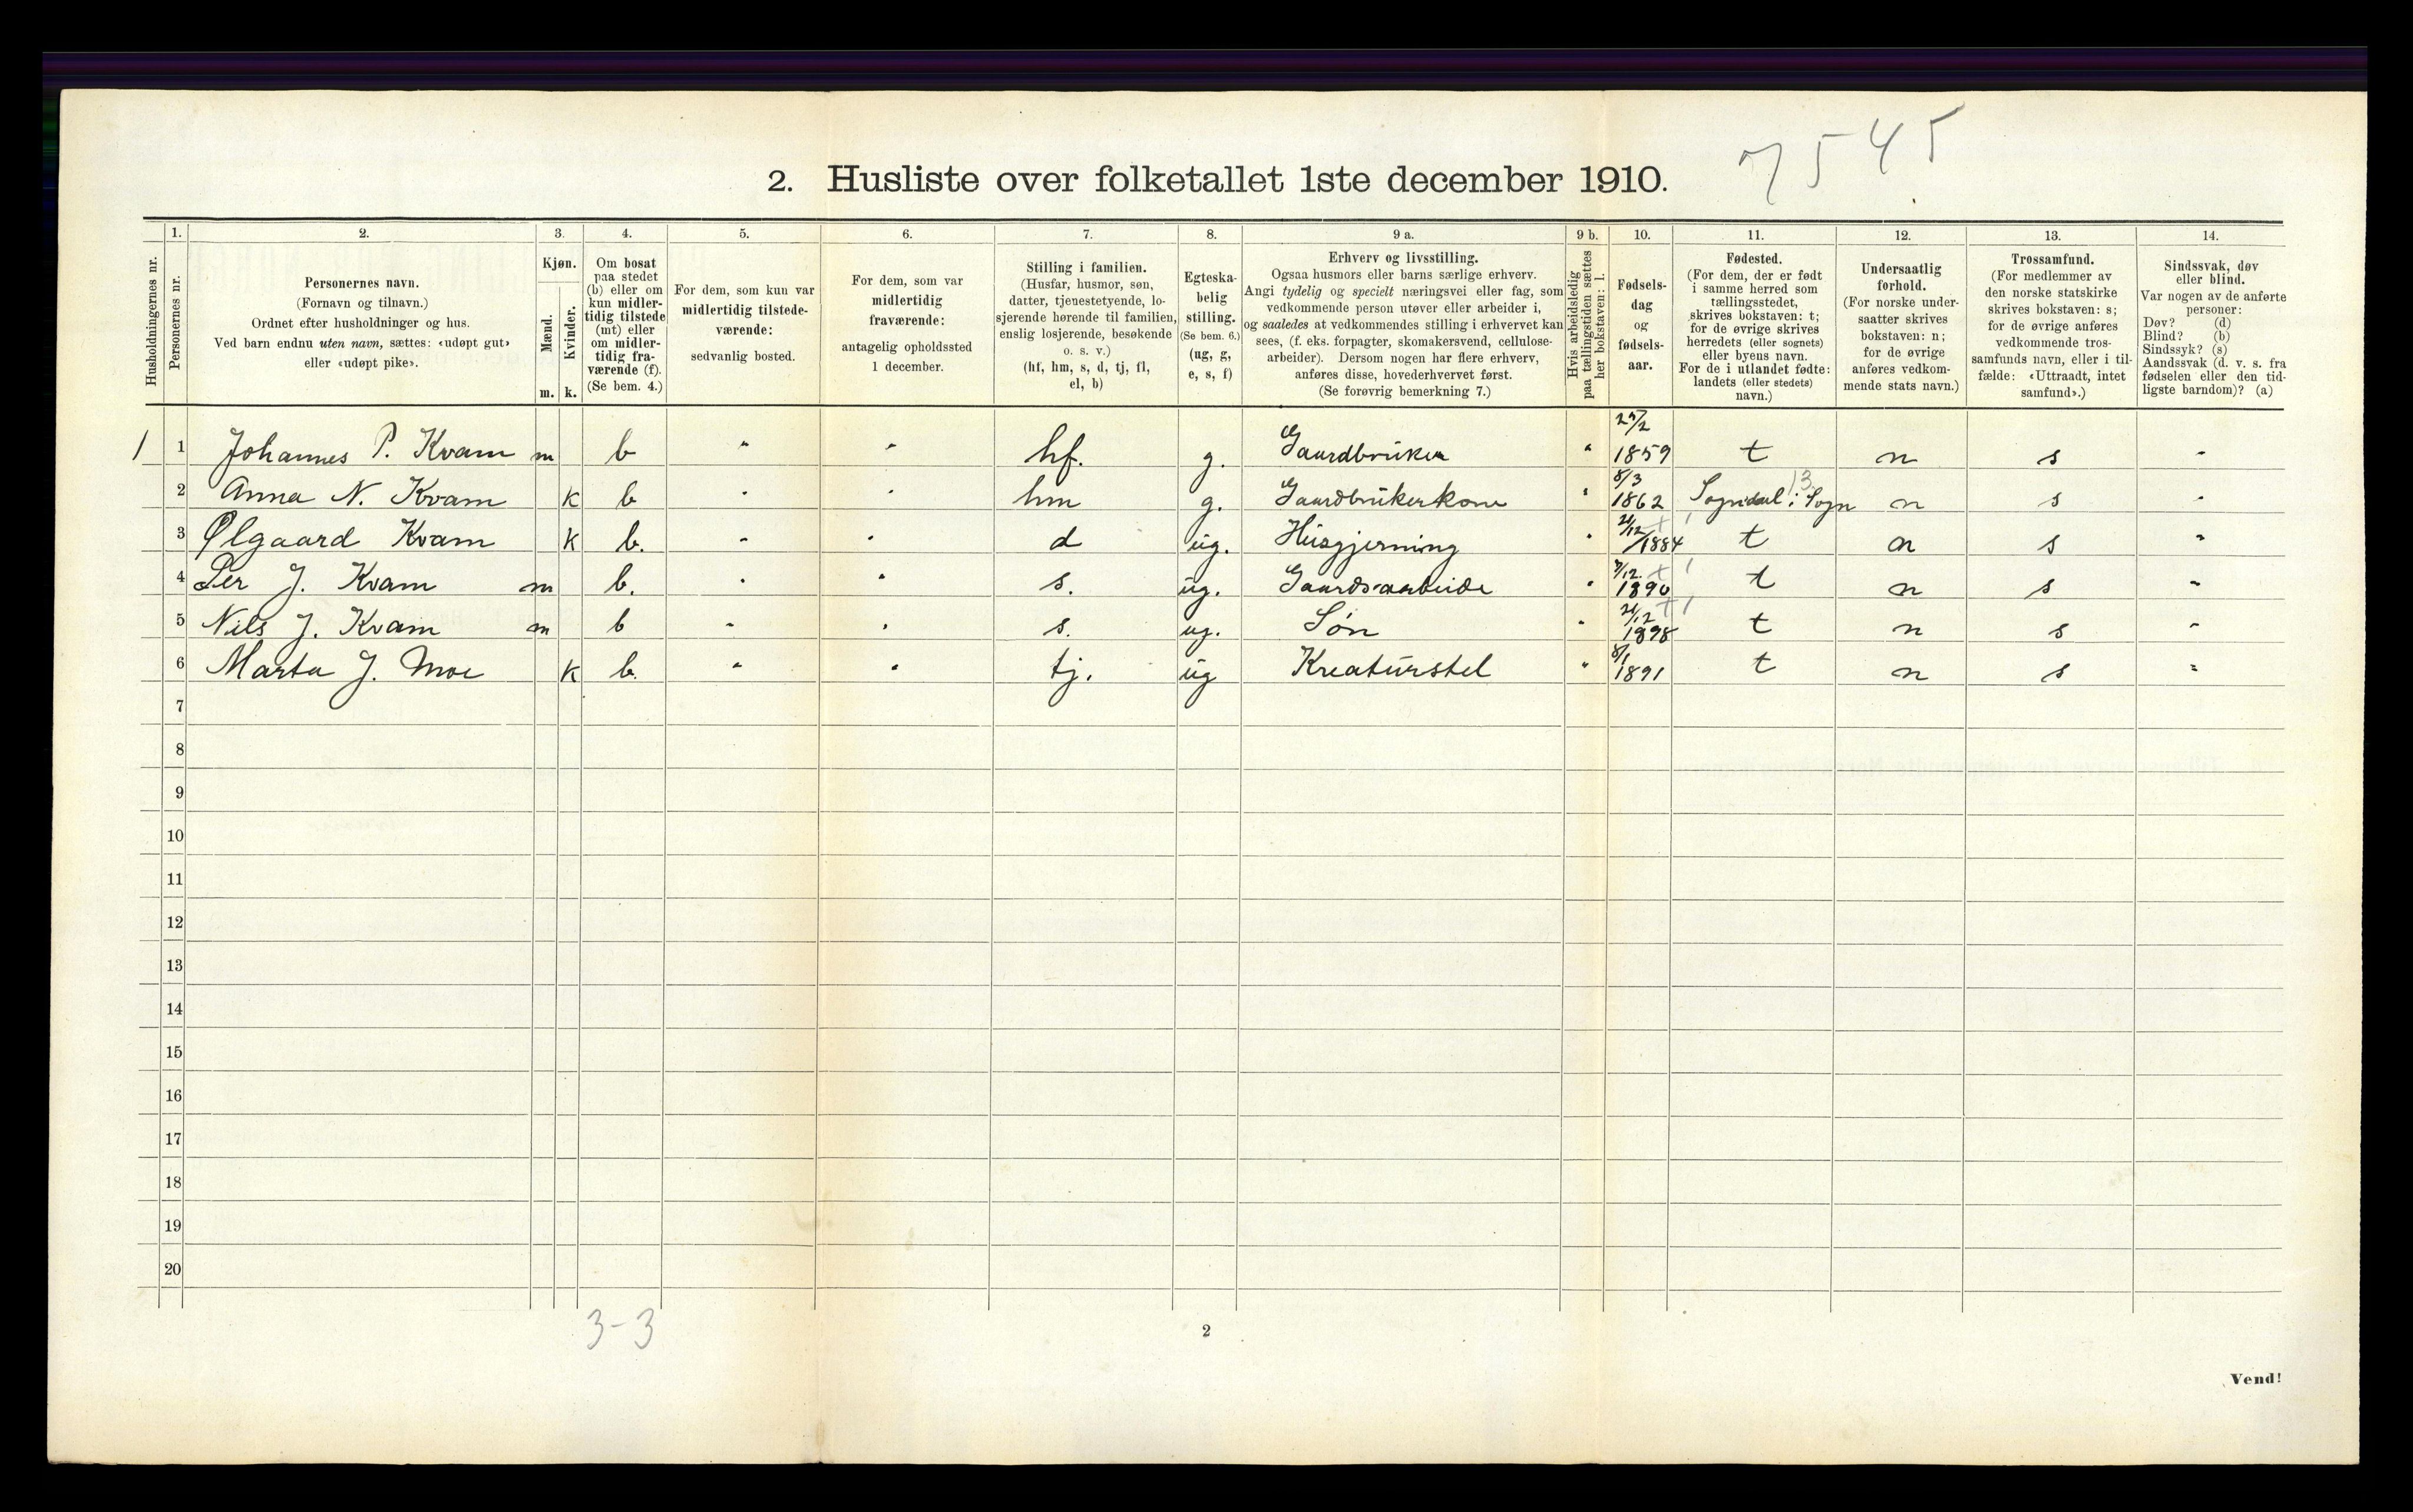 7545
2. Husliste over folketallet 1ste december 1910.
Husholdningernes nr.
1. 2. 3. 4. 5. 6. 7. 8. 9 a. 9 b. 10. 11. 12. 13. 14.
Personernes nr.
Personernes navn.
(Fornavn og tilnavn.)
Ordnet efter husholdninger og hus.
Ved barn endnu uten navn, sættes: «udøpt gut»
eller «udøpt pike».
Kjøn.
Mænd.
Kvinder.
m. k.
Om bosat
paa stedet
(b) eller om
kun midler-
tidig tilstede
(mt) eller
om midler-
tidig fra-
værende (f).
(Se bem. 4.)
For dem, som kun var
midlertidig tilstede-
værende:
sedvanlig bosted.
For dem, som var
midlertidig
fraværende:
antagelig opholdssted
1 december.
Stilling i familien.
(Husfar, husmor, søn,
datter, tjenestetyende, lo-
sjerende hørende til familien,
enslig losjerende, besøkende
o. s. v.)
(hf, hm, s, d, tj, fl,
el, b)
Egteska-
belig
stilling.
(Se bem. 6.)
(ug, g,
e, s, f)
Erhverv og livsstilling.
Ogsaa husmors eller barns særlige erhverv.
Angi tydelig og specielt næringsvei eller fag, som
vedkommende person utøver eller arbeider i,
og saaledes at vedkommendes stilling i erhvervet kan
sees, (f. eks. forpagter, skomakersvend, cellulose-
arbeider). Dersom nogen har flere erhverv,
anføres disse, hovederhvervet først.
(Se forøvrig bemerkning 7.)
Hvis arbeidsledig
paa tællingstiden sættes
her bokstaven: l.
Fødsels-
dag
og
fødsels-
aar.
Fødested.
(For dem, der er født
i samme herred som
tællingsstedet,
skrives bokstaven: t;
for de øvrige skrives
herredets (eller sognets)
eller byens navn.
For de i utlandet fødte:
landets (eller stedets)
navn.)
Undersaatlig
forhold.
(For norske under-
saatter skrives
bokstaven: n;
for de øvrige
anføres vedkom-
mende stats navn.)
Trossamfund.
(For medlemmer av
den norske statskirke
skrives bokstaven: s;
for de øvrige anføres
vedkommende tros-
samfunds navn, eller i til-
fælde: «Uttraadt, intet
samfund».)
Sindssvak, døv
eller blind.
Var nogen av de anførte
personer:
Døv? (d)
Blind? (b)
Sindssyk? (s)
Aandssvak (d. v. s. fra
fødselen eller den tid-
ligste barndom)? (a)
1 1 Johannes P. Kvam m b " " hf. g. Gaardbruker " 1859 t n s "
2 Anna N. Kvam k b " " hm g. Gaardbrukerkone " 8/3 1862 Sogndal i Sogn 13 n s "
3 Ølgaard Kvam k b. " " d ug. Husgjerning " 1884 t n s "
4 Per J. Kvam m b. " " s. ug. Gaardsarbeide " 1890 t n s "
5 Nils J. Kvam m b " " s. ug. Søn " 1898 t n s "
6 Marta J. Moe k b. " " tj. ug Kreaturstel " 8/1 1891 t n s "
7
8
9
10
11
12
13
14
15
16
17
18
19
20
3-3
2
Vend!